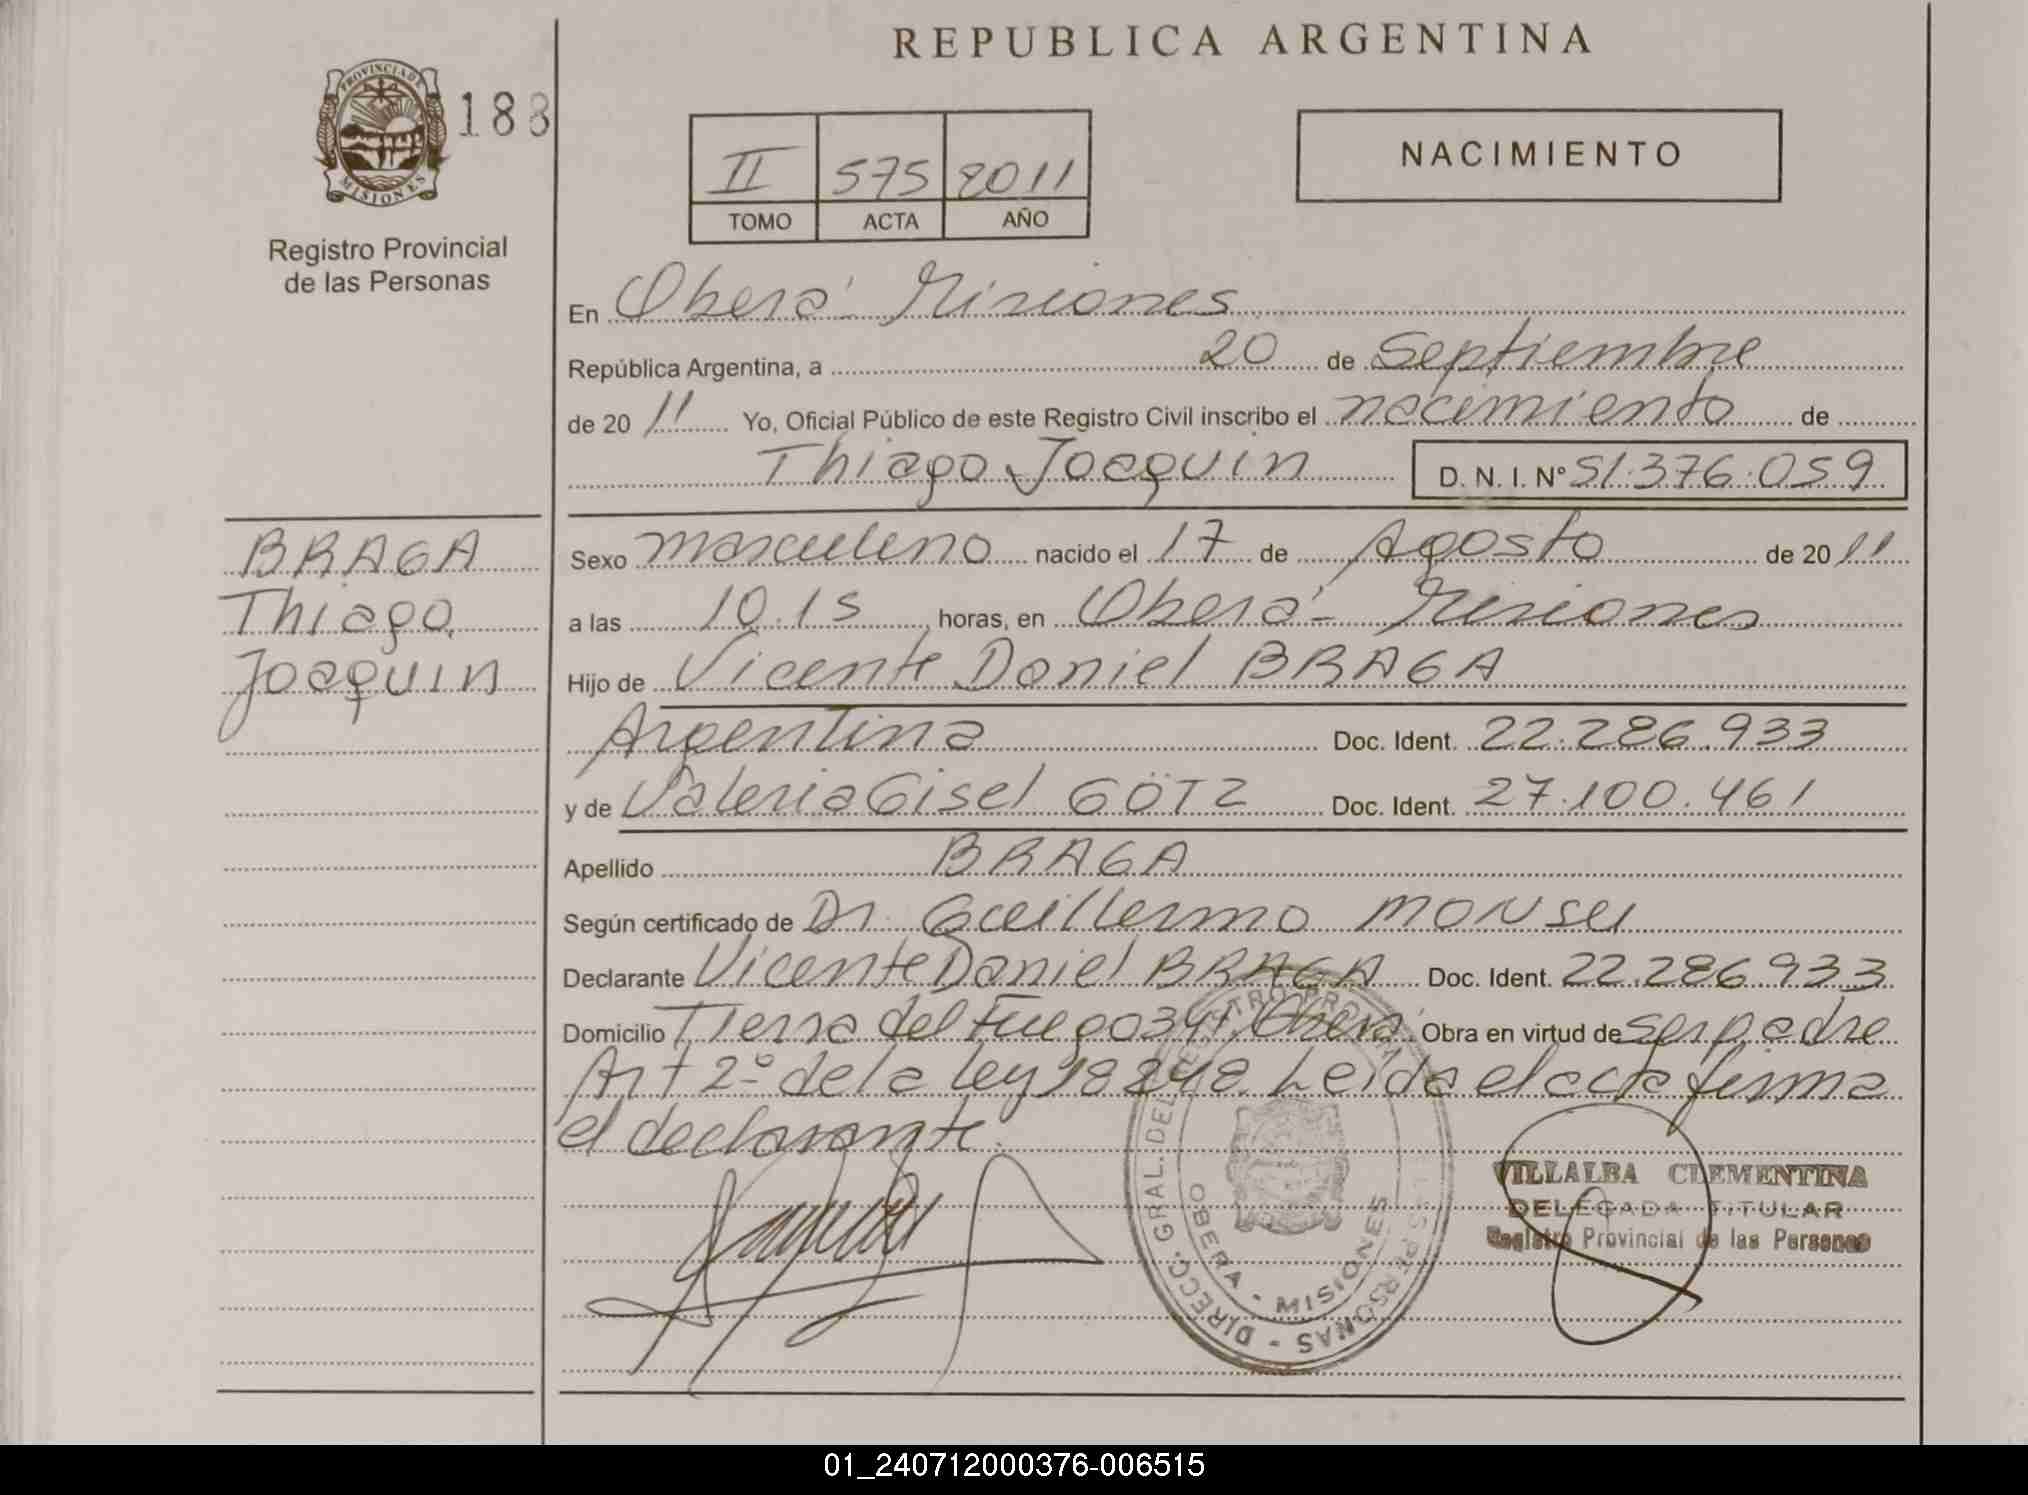 REPUBLICA ARGENTINA
PROVINCIA DE MISIONES
188
Registro Provincial
de las Personas
II 575 2011
TOMO ACTA AÑO
NACIMIENTO
En Oberá - Misiones
República Argentina, a 20 de Septiembre
de 20 11 Yo, Oficial Público de este Registro Civil inscribo el nacimiento de
Thiago Joaquin D. N. I. Nº 51.376.059
BRAGA
Thiago
Joaquin
Sexo masculino nacido el 17 de Agosto de 20 11
a las 10.15 horas, en Oberá - Misiones
Hijo de Vicente Daniel BRAGA
Argentina Doc. Ident. 22.286.933
y de Valeria Gisel GÖTZ Doc. Ident. 27.100.461
Apellido BRAGA
Según certificado de Dr. Guillermo MONSU
Declarante Vicente Daniel BRAGA Doc. Ident. 22.286.933
Domicilio Tierra del Fuego 341, Oberá Obra en virtud de ser padre
Art 2º de la ley 18248. Leída el acta firma
el declarante.
DIRECC. GRAL. DEL REGISTRO PROVINCIAL DE LAS PERSONAS -
OBERA - MISIONES
VILLALBA CLEMENTINA
DELEGADA TITULAR
Registro Provincial de las Personas
01_240712000376-006515